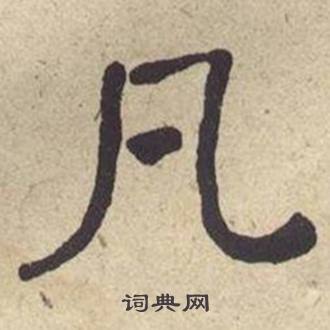 凡
词典网